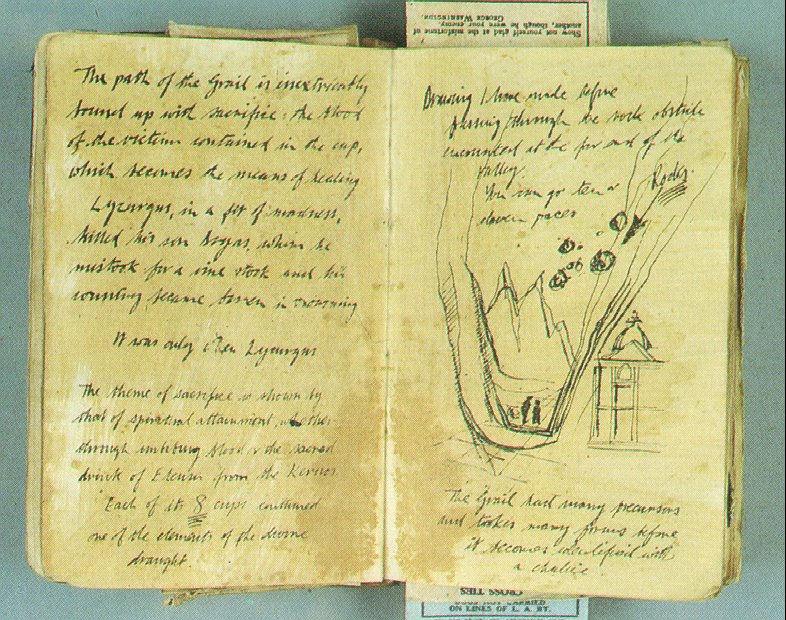 Show not yourself glad at the misfortune of
another, though he were your enemy.
GEORGE WASHINGTON.
The path of the Grail is inextricably
bound up with sacrifice: the blood
of the victim contained in the cup,
which becomes the means of healing
Lycurgus, in a fit of madness,
killed his son Dryas, whom he
mistook for a vine stock and his
country became barren in mourning
It was only when Lycurgus
The theme of sacrifice is shown by
that of spiritual attainment, whether
through imbibing blood or the sacred
drink of Eleusis from the Kernos
Each of its 8 cups contained
one of the elements of the divine
draught.
Drawing I have made before
passing through the rock obstacle
encountered at the far end of the
valley.
You can go ten or
eleven paces
Rocks.
The Grail had many precursors
and takes many forms before
it becomes identified with
a chalice.
CROSS TIES
ON LINES OF L. A. RY.